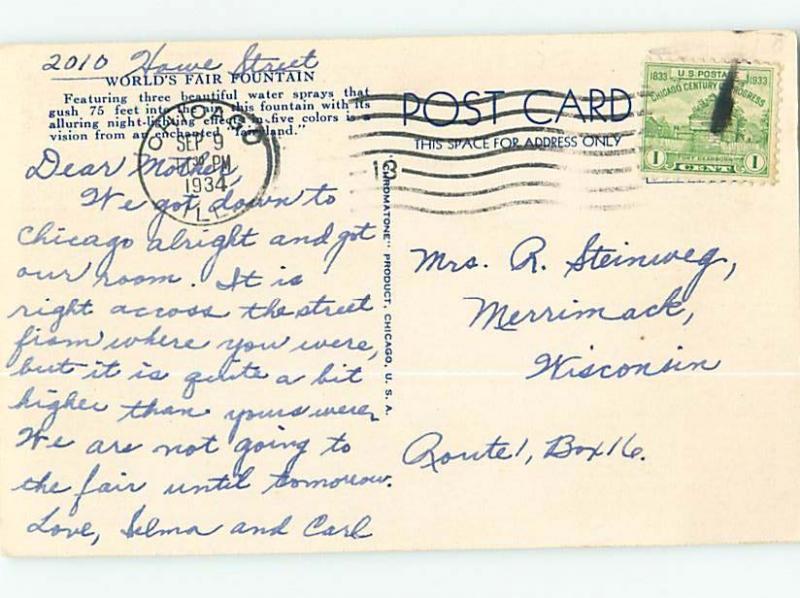 2010 Howe Street
WORLD'S FAIR FOUNTAIN
Featuring three beautiful water sprays that
gush 75 feet into the air, this fountain with its
alluring night-lighting effects in five colors is a
vision from an enchanted "fairyland."
Dear Mother,
We got down to
Chicago alright and got
our room. It is
right across the street
from where you were,
but it is quite a bit
higher than yours were.
We are not going to
the fair until tomorrow.
Love, Selma and Carl
CHICAGO
SEP 9
PM
1934
ILL.
13
"CHROMATONE" PRODUCT, CHICAGO, U. S. A.
POST CARD
THIS SPACE FOR ADDRESS ONLY
1833 U.S. POSTAGE 1933
CHICAGO CENTURY OF PROGRESS
FORT DEARBORN
1 CENT 1
Mrs. R. Steinweg,
Merrimack,
Wisconsin
Route 1, Box 16.